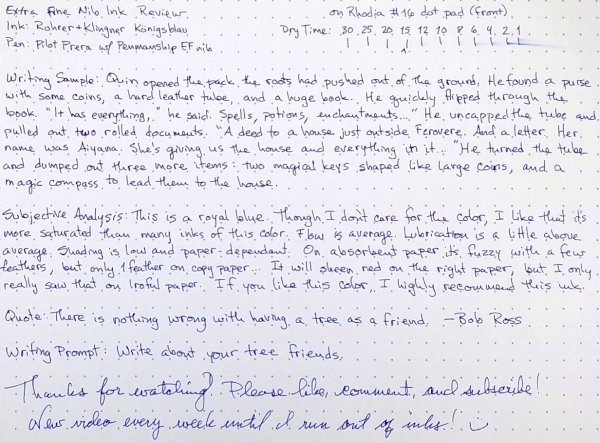 Extra Fine Nib Ink Review on Rhodia #16 dot pad (front)
Ink: Rohrer + Klingner Königsblau Dry Time: 30 25 20 15 12 10 8 6 4 2 1
Pen: Pilot Prera w/ Penmanship EF nib
Writing Sample: Quin opened the pack the roots had pushed out of the ground. He found a purse
with some coins, a hard leather tube, and a huge book. He quickly flipped through the
book. "It has everything," he said. Spells, potions, enchantments..." He uncapped the tube and
pulled out two rolled documents. "A deed to a house just outside Ferovere. And a letter. Her
name was Aiyana. She's giving us the house and everything in it..." He turned the tube
and dumped out three more items: two magical keys shaped like large coins, and a
magic compass to lead them to the house.
Subjective Analysis: This is a royal blue. Though I don't care for the color, I like that it's
more saturated than many inks of this color. Flow is average. Lubrication is a little above
average. Shading is low and paper-dependant. On absorbent paper it's fuzzy with a few
feathers, but only 1 feather on copy paper... It will sheen red on the right paper, but I only
really saw that on Iroful paper. If you like this color, I highly recommend this ink.
Quote: There is nothing wrong with having a tree as a friend. -Bob Ross
Writing Prompt: Write about your tree friends.
Thanks for watching! Please like, comment, and subscribe!
New video every week until I run out of inks! :)